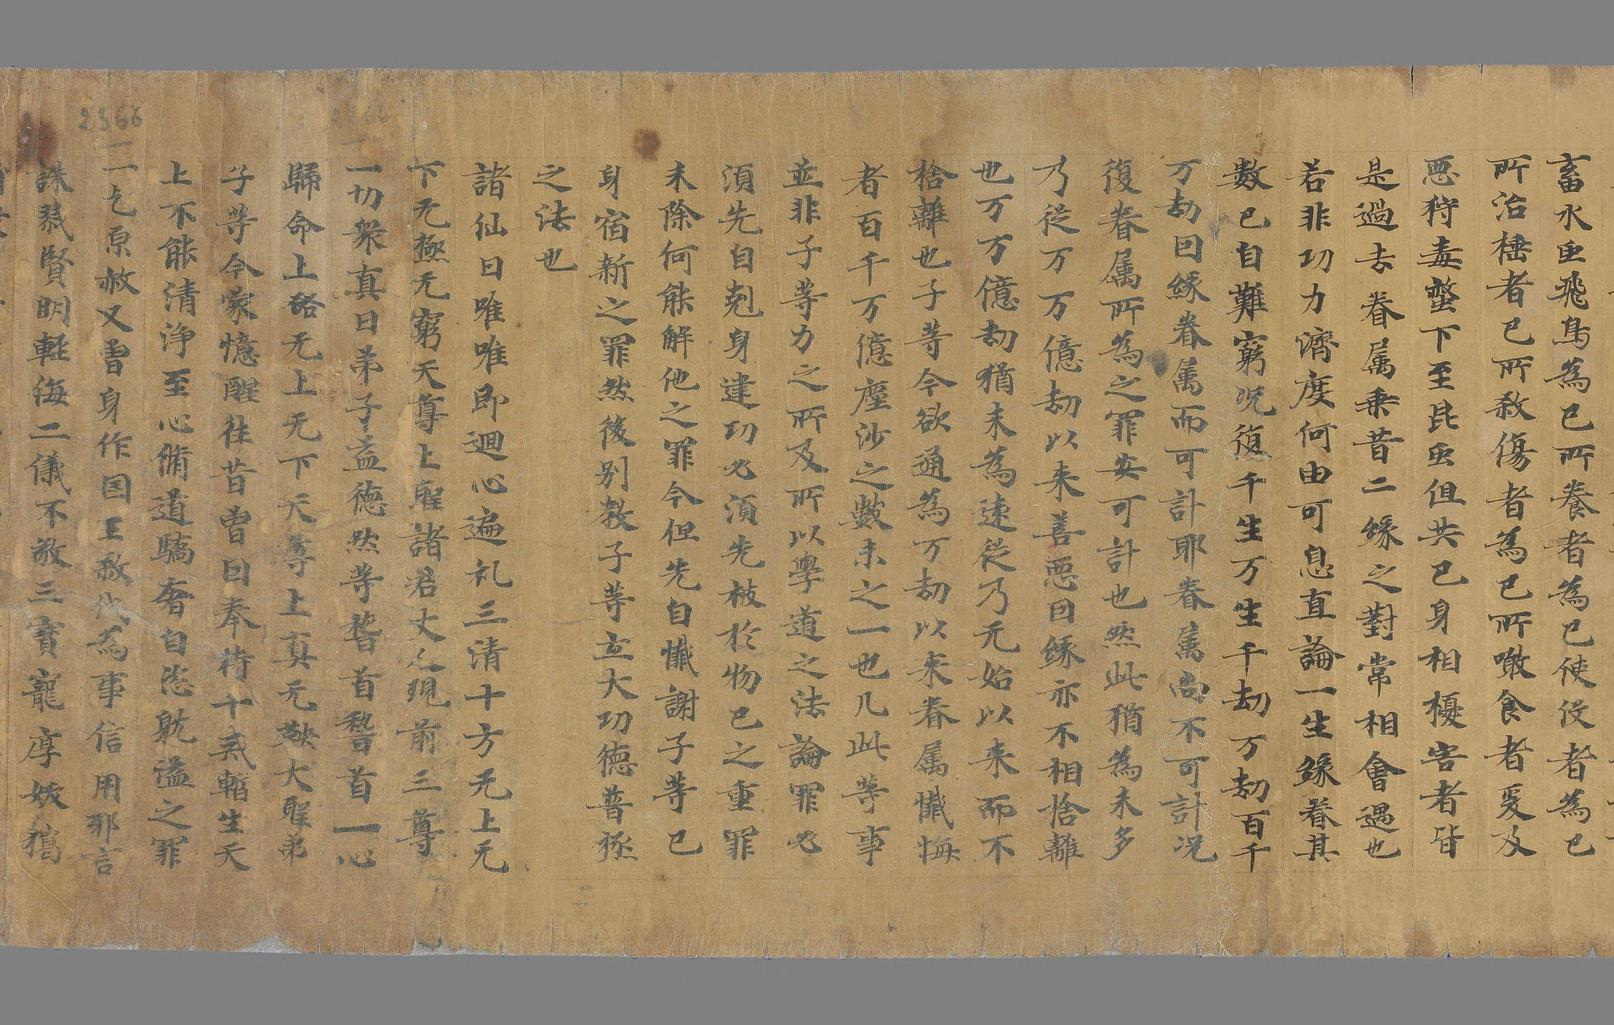 畜水虫飛鳥為已所養者為已使役者為已
所治棰者已所敘傷者為已所噉食者爰及
惡狩毒螫下至昆虫但共已身相擾害者皆
是過去眷属乗昔二緣之對常相會遇也
若非功力濟度何由可息直論一生緣眷其
數已自難窮况復千生万生千劫万劫百千
万劫回緣眷属而可計耶眷属尚不可計况
復眷属所為之罪安可計也然此猶為未多
乃從万万億劫以来善惡回緣亦不相捨離
也万万億劫猶未為速從乃无始以来而不
捨離也子等今欲通為万劫以来眷属懺悔
者百千万億塵沙之數未之一也凢此等事
並非子等力之所及所以學道之法論罪必
湏先自尅身建功必湏先救於物已之重罪
未除何能解他之罪今但先自懺謝子等已
身宿新之罪然後别教子等立大功德普拯
之法也
諸仙曰唯唯即迴心遍礼三清十方无上无
下无極无窮天尊上聖諸君丈人現前三尊
一切衆真曰弟子益德然等嵆首嵆首一心
歸命上啓无上无下天尊上真无鞅大聖弟
子等今蒙憶醒往昔曽回奉持十戒暫生天
上不能清浄至心脩道驕奢自恣躭溢之罪
一一乞原赦又曽身作国王教代為事信用邪言
誅戮賢明輕侮二儀不敬三寳寵厚妓
2366